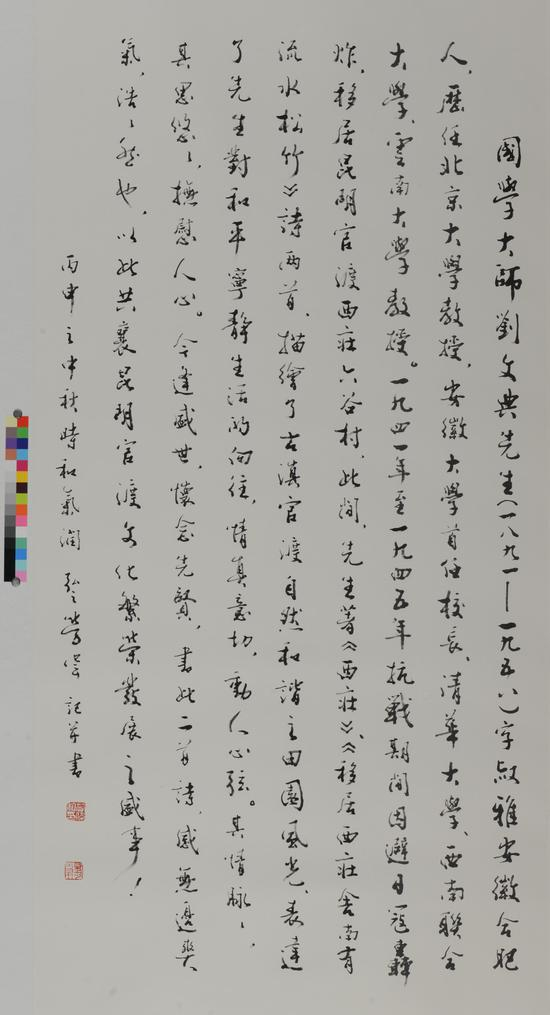 國學大師劉文典先生（一八九一—一九五八）字叔雅安徽合肥
人，歷任北京大學教授，安徽大學首任校長，清華大學、西南聯合
大學、雲南大學教授。一九四一年至一九四五年抗戰期間因避日寇轟
炸，移居昆明官渡西莊六谷村，此間，先生著《西莊》、《移居西莊舍南有
流水松竹》詩兩首，描繪了古滇官渡自然和諧之田園風光，表達
了先生對和平寧靜生活的向往，情真意切，動人心弦。其情脈丶，
其思悠丶，撫慰人心。今逢盛世，懷念先賢，書此二首詩，感無邊與
氣，浩丶然也，以此共襄昆明官渡文化繁榮發展之盛事！
丙申之中秋時和氣潤 記并書